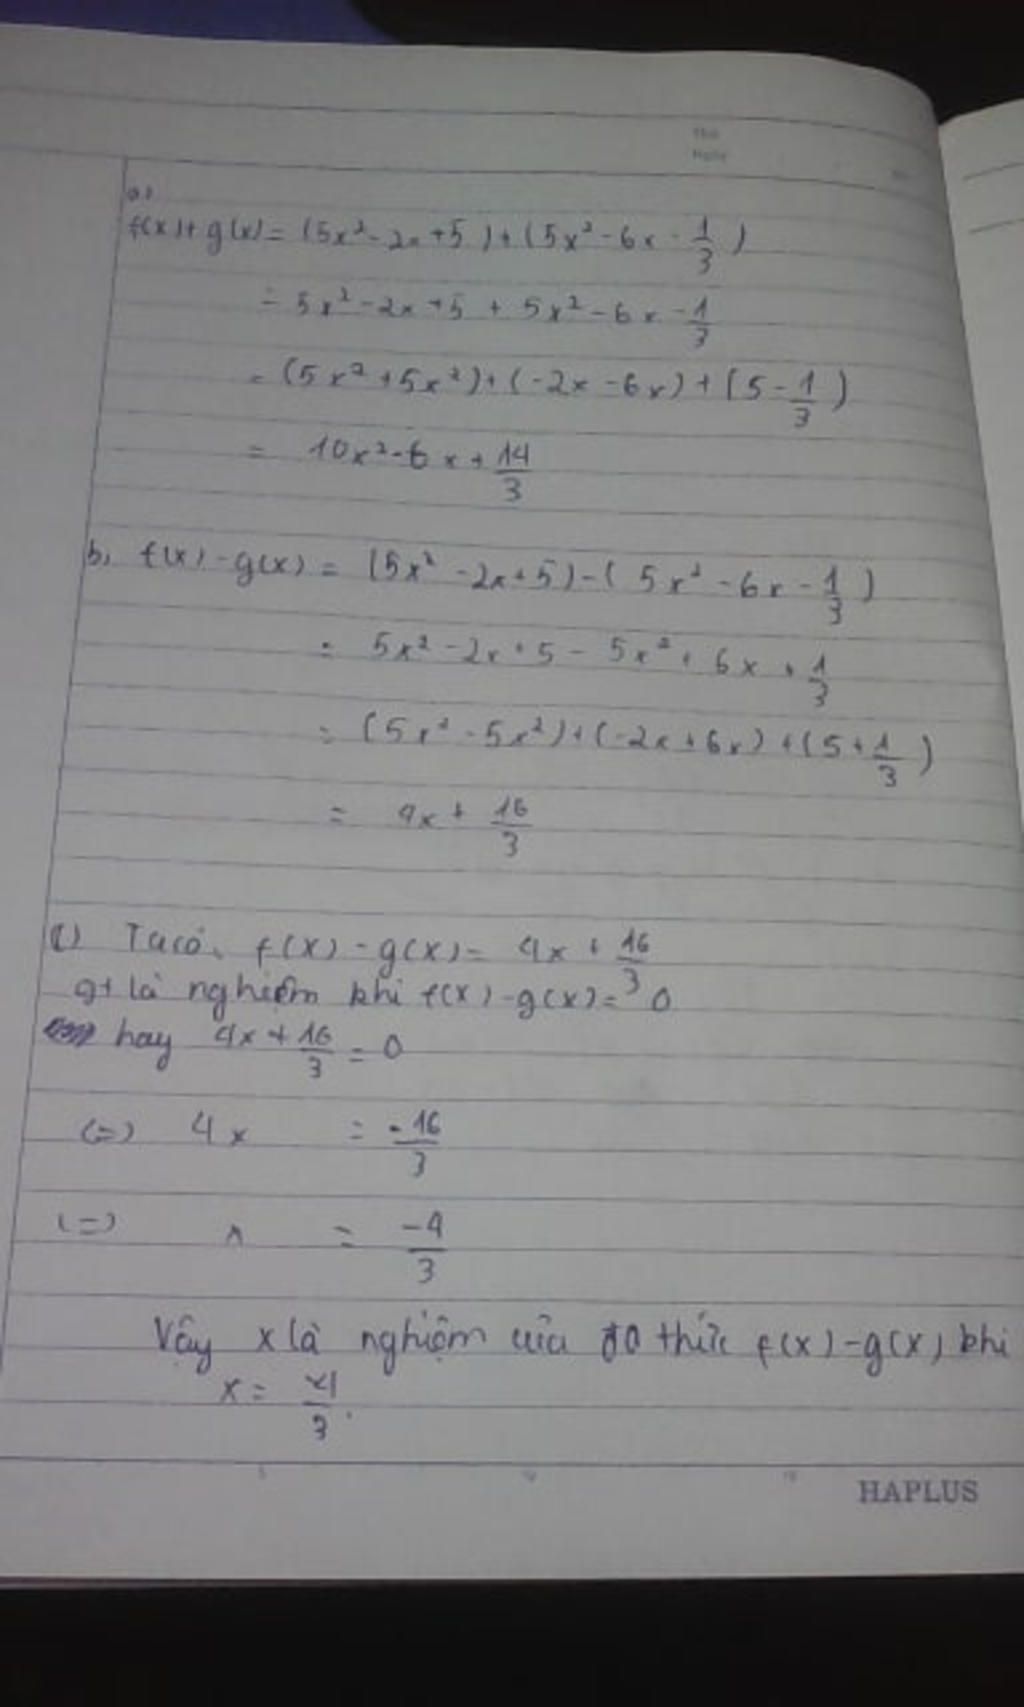 Thứ
Ngày
a)
f(x)+g(x)=(5x²-2x+5)+(5x²-6x-1/3)
=5x²-2x+5+5x²-6x-1/3
=(5x²+5x²)+(-2x-6x)+(5-1/3)
= 10x²-6x+14/3
b, f(x)-g(x)=(5x²-2x+5)-(5x²-6x-1/3)
= 5x²-2x+5-5x²+6x+1/3
=(5x²-5x²)+(-2x+6x)+(5+1/3)
= 4x+16/3
c) Ta có, f(x)-g(x)= 4x+16/3
là nghiệm khi f(x)-g(x)=0
hay 4x+16/3=0
(=) 4x = -16/3
(=) x = -4/3
Vậy x là nghiệm của đa thức f(x)-g(x) khi
x=
HAPLUS